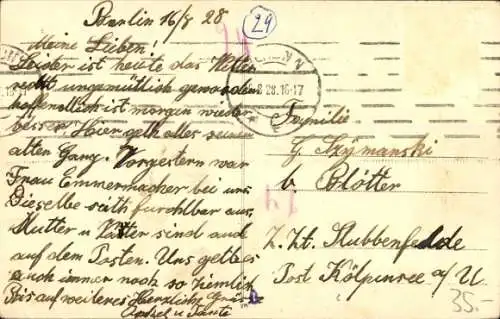 Berlin 16/8 28
Meine Lieben!
Leider ist heute das Wetter
recht ungemütlich geworden
hoffendlich ist morgen wieder
besser. Hier geht alles seinen
alten Gang. Vorgestern war
Frau Emmermacher bei uns
Dieselbe sieht furchtbar aus.
Mutter u Vater sind auch
auf dem Posten. Uns geht es
auch immer noch so ziemlich
Bis auf weiteres Herzliche Grüße
Onkel u Tante
29
8.28.16-17
Familie
G. Szymanski
b. Blötter
z. Zt. Stubbenfelde
Post Kölpinsee a/U
35.-